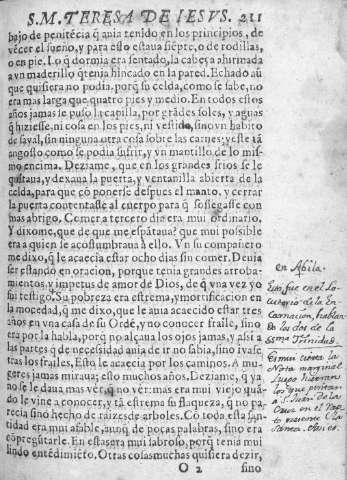 S. M. TERESA DE IESVS. 211
bajo de penitẽcia q̃ auia tenido en los principios, de
vẽcer el sueño, y para esto estaua siẽpre, o de rodillas,
o en pie. Lo q̃ dormia era sentado, la cabeça arrimada
a vn maderillo q̃ tenia hincado en la pared. Echado aũ
que quisiera no podia, porq̃ su celda, como se sabe, no
era mas larga que quatro pies y medio. En todos estos
años jamas se puso la capilla, por grãdes soles, y aguas
q̃ hiziesse, ni cosa en los pies, ni vestido, sino vn habito
de sayal, sin ninguna otra cosa sobre las carnes: y este tã
angosto como se podia sufrir, y vn mantillo de lo mis-
mo encima. Deziame, que en los grandes frios se le
quitaua, y dexaua la puerta, y ventanilla abierta de la
celda, para que cõ ponerse despues el manto, y cerrar
la puerta contentasse al cuerpo para q̃ sosegasse con
mas abrigo. Comer a tercero dia era mui ordinario.
Y dixome, que de que me espãtaua? que mui possible
era a quien se acostumbraua a ello. Vn su compañero
me dixo, q̃ le acaecia estar ocho dias sin comer. Deuia
ser estando en oracion, porque tenia grandes arroba-
mientos, y impetus de amor de Dios, de q̃ vna vez yo
fui testigo. Su pobreza era estrema, y mortificacion en
la mocedad, q̃ me dixo, que le auia acaecido estar tres
años en vna casa de su Ordẽ, y no conocer fraile, sino
era por la habla, porq̃ no alçaua los ojos jamas, y assi a
las partes q̃ de necessidad auia de ir no sabia, sino ivase
tras los frailes. Esto le acaecia por los caminos. A mu-
geres jamas miraua; esto muchos años. Deziame, q̃ ya
no se le daua mas ver, q̃ no ver: mas era mui viejo quã-
do le vine a conocer, y tã estrema su flaqueza, q̃ no pa-
recia sino hecho de raizes de arboles. Cõ toda esta san-
tidad era mui afable, aunq̃ de poças palabras, sino era
cõ pregũtarle. En estas era mui sabroso, porq̃ tenia mui
lindo entẽdimiẽto. Otras cosas muchas quisiera dezir,
O 2 sino
en Abila.
Esto fue en el Lo-
cutorio de la En-
carnacion, hablan-
do los dos de la
SSma Trinidad.
Es mui cierta la
Nota marginal